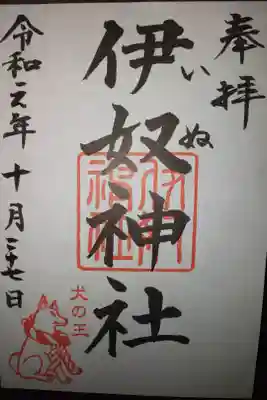 奉拝
伊奴神社
いぬ
伊奴神社
犬の王
令和元年十月二十七日